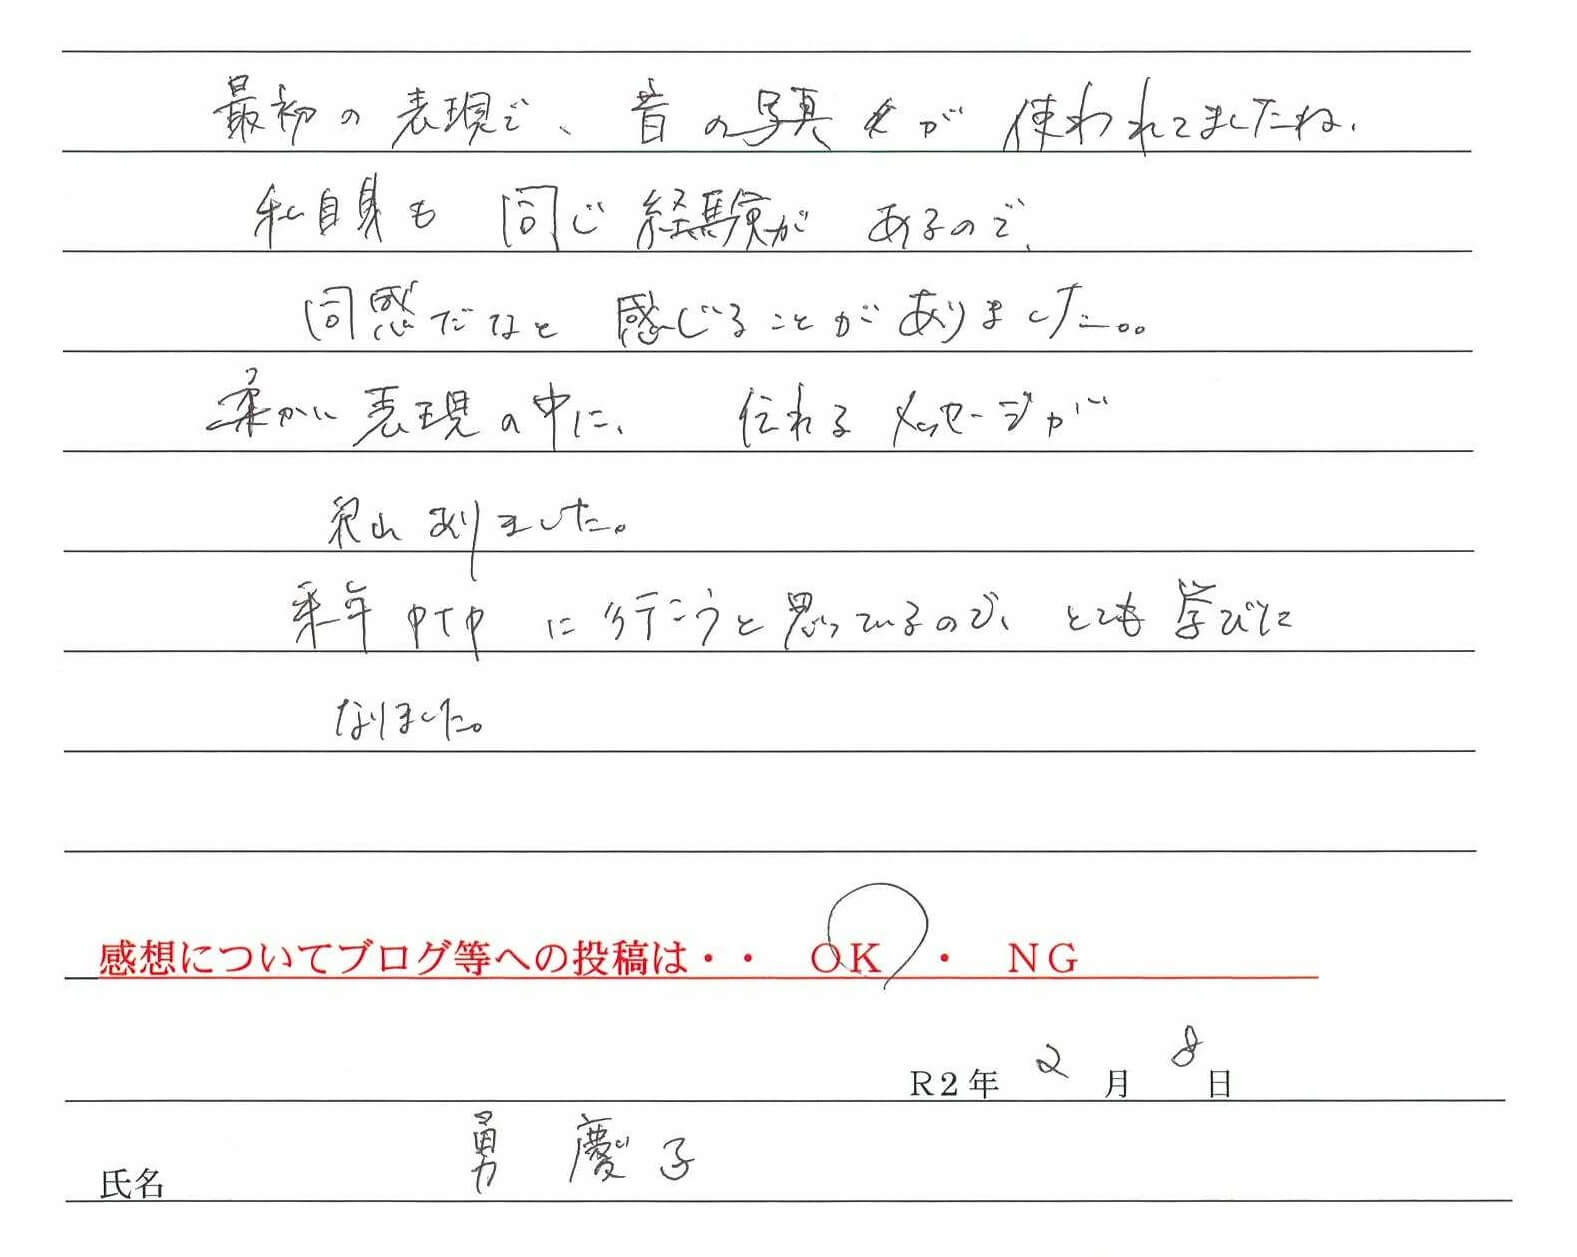 最初の表現で、昔の写真が使われてましたね、
私自身も同じ経験があるので、
同感だなと感じることがありました。。
柔かに表現の中に、伝れるメッセージが
沢山ありました。
来年 中T中 に行こうと思っているので、とても学びに
なりました。
感想についてブログ等への投稿は・・ OK ・ NG
R2年 2 月 8 日
氏名 勇 慶子